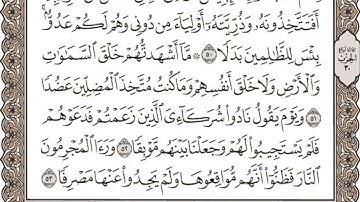 أَفَتَتَّخِذُونَهُۥ وَذُرِّيَّتَهُۥٓ أَوۡلِيَآءَ مِن دُونِي وَهُمۡ لَكُمۡ عَدُوُّۢۚ
بِئۡسَ لِلظَّٰلِمِينَ بَدَلٗا ٥٠ ۞ مَّآ أَشۡهَدتُّهُمۡ خَلۡقَ ٱلسَّمَٰوَٰتِ
وَٱلۡأَرۡضِ وَلَا خَلۡقَ أَنفُسِهِمۡ وَمَا كُنتُ مُتَّخِذَ ٱلۡمُضِلِّينَ عَضُدٗا
٥١ وَيَوۡمَ يَقُولُ نَادُواْ شُرَكَآءِيَ ٱلَّذِينَ زَعَمۡتُمۡ فَدَعَوۡهُمۡ
فَلَمۡ يَسۡتَجِيبُواْ لَهُمۡ وَجَعَلۡنَا بَيۡنَهُم مَّوۡبِقٗا ٥٢ وَرَءَا ٱلۡمُجۡرِمُونَ
ٱلنَّارَ فَظَنُّوٓاْ أَنَّهُم مُّوَاقِعُوهَا وَلَمۡ يَجِدُواْ عَنۡهَا مَصۡرِفٗا ٥٣